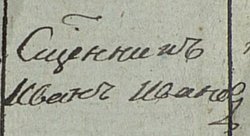 Сщ҃енникъ
Иванъ Иванов